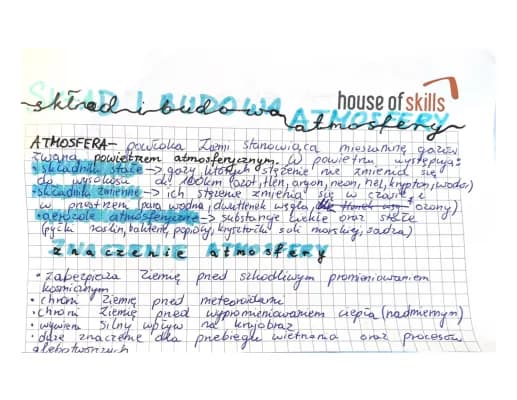 SKŁAD I BUDOWA ATMOSFERY
skład i budowa atmosfery
house of skills
ATMOSFERA - powłoka Ziemi stanowiąca mieszaninę gazów
zwaną powietrzem atmosferycznym. W powietrzu występują:
• składniki stałe → gazy, których stężenie nie zmienia się
do wysokości do 100km (azot, tlen, argon, neon, hel, krypton, wodór)
• składniki zmienne → ich stężenie zmienia się w czasie i
w przestrzeni (para wodna, dwutlenek węgla, ozony)
• aerozole atmosferyczne → substancje ciekłe oraz stałe
(pyłki roślin, bakterie, popioły, kryształki soli morskiej, sadza)
ZNACZENIE ATMOSFERY
• zabezpiecza Ziemię przed szkodliwym promieniowaniem
kosmicznym
• chroni Ziemię przed meteoroidami
• chroni Ziemię przed wypromieniowaniem ciepła (nadmiernym)
• wywiera silny wpływ na krajobraz
• duże znaczenie dla przebiegu wietrzenia oraz procesów
glebotwórczych